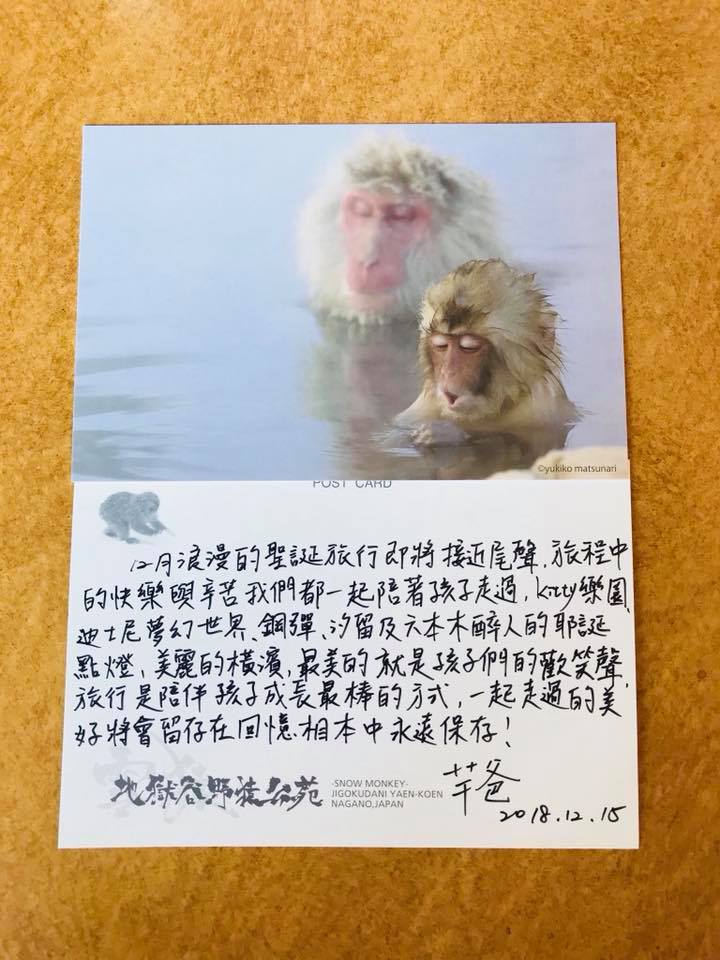 ©yukiko matsunari
POST CARD
12月浪漫的聖誕旅行即將接近尾聲,旅程中
的快樂與辛苦我們都一起陪著孩子走過,kitty樂園、
迪士尼夢幻世界、鋼彈、汐留及六本木醉人的耶誕
點燈,美麗的橫濱,最美的就是孩子們的歡笑聲,
旅行是陪伴孩子成長最棒的方式,一起走過的美
好將會留存在回憶相本中永遠保存!
地獄谷野猿公苑
-SNOW MONKEY-
JIGOKUDANI YAEN-KOEN
NAGANO,JAPAN
芊爸
2018.12.15